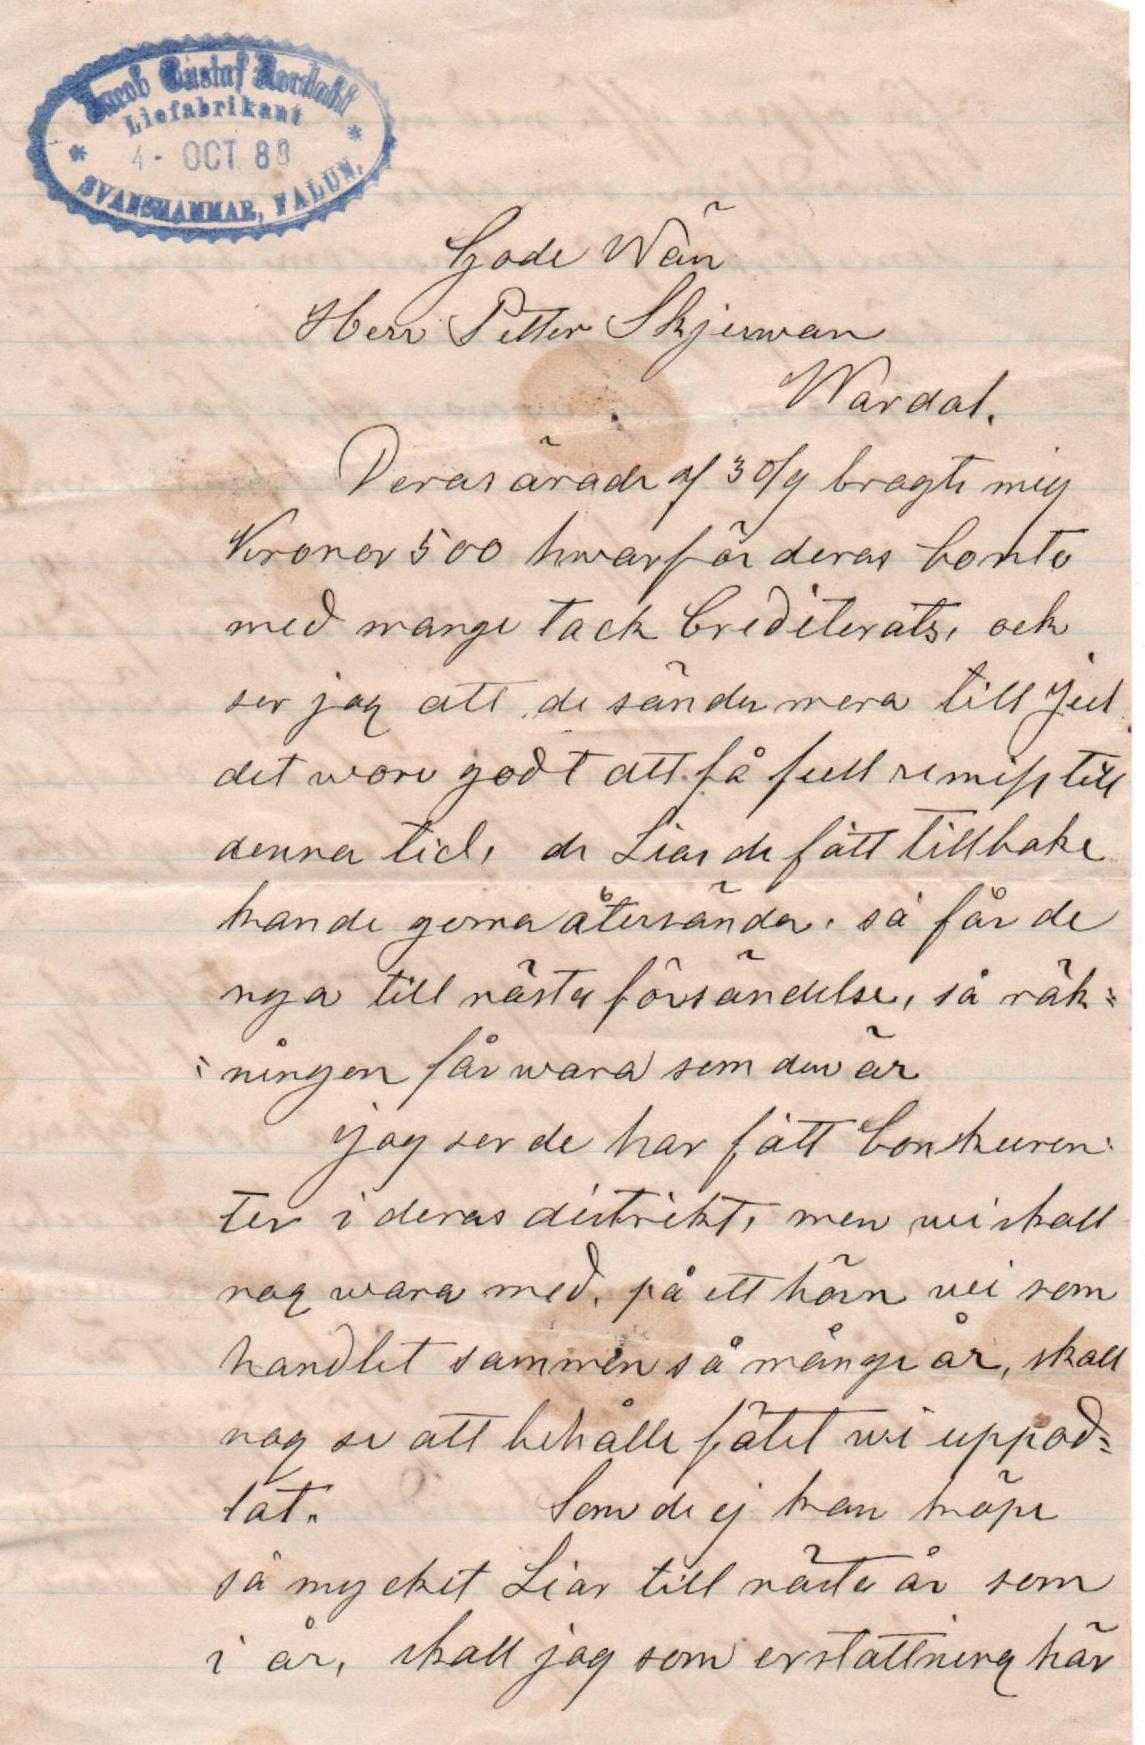 Jacob Gustaf Nordahl
Liefabrikant
* 4 - OCT 88 *
SVANSHAMMAR, FALUN.
Gode Wän
Herr Petter Skjerwan
Wardal.
Deras ärade af 30/9 bragte mig
Kronor 500 hwarför deras Conto
med mange tack Crediterats, och
ser jag att de sänder mera till Jul
det wore godt att få full remiss till
denna tid, de Liar de fått tillbake
kan de gerna återsända, så får de
nya till nästa försändelse, så räk=
=ningen får wara som den är
Jag ser de har fått Conkuren=
ter i deras distrikt, men wi skall
nog wara med, på ett hörn wi som
handlet sammen så månge år, skall
nog se att behålle fätet wi uppod=
lat. Som de ej kan köpe
så mycket Liar till nästa år som
i år, skall jag som erstattning här